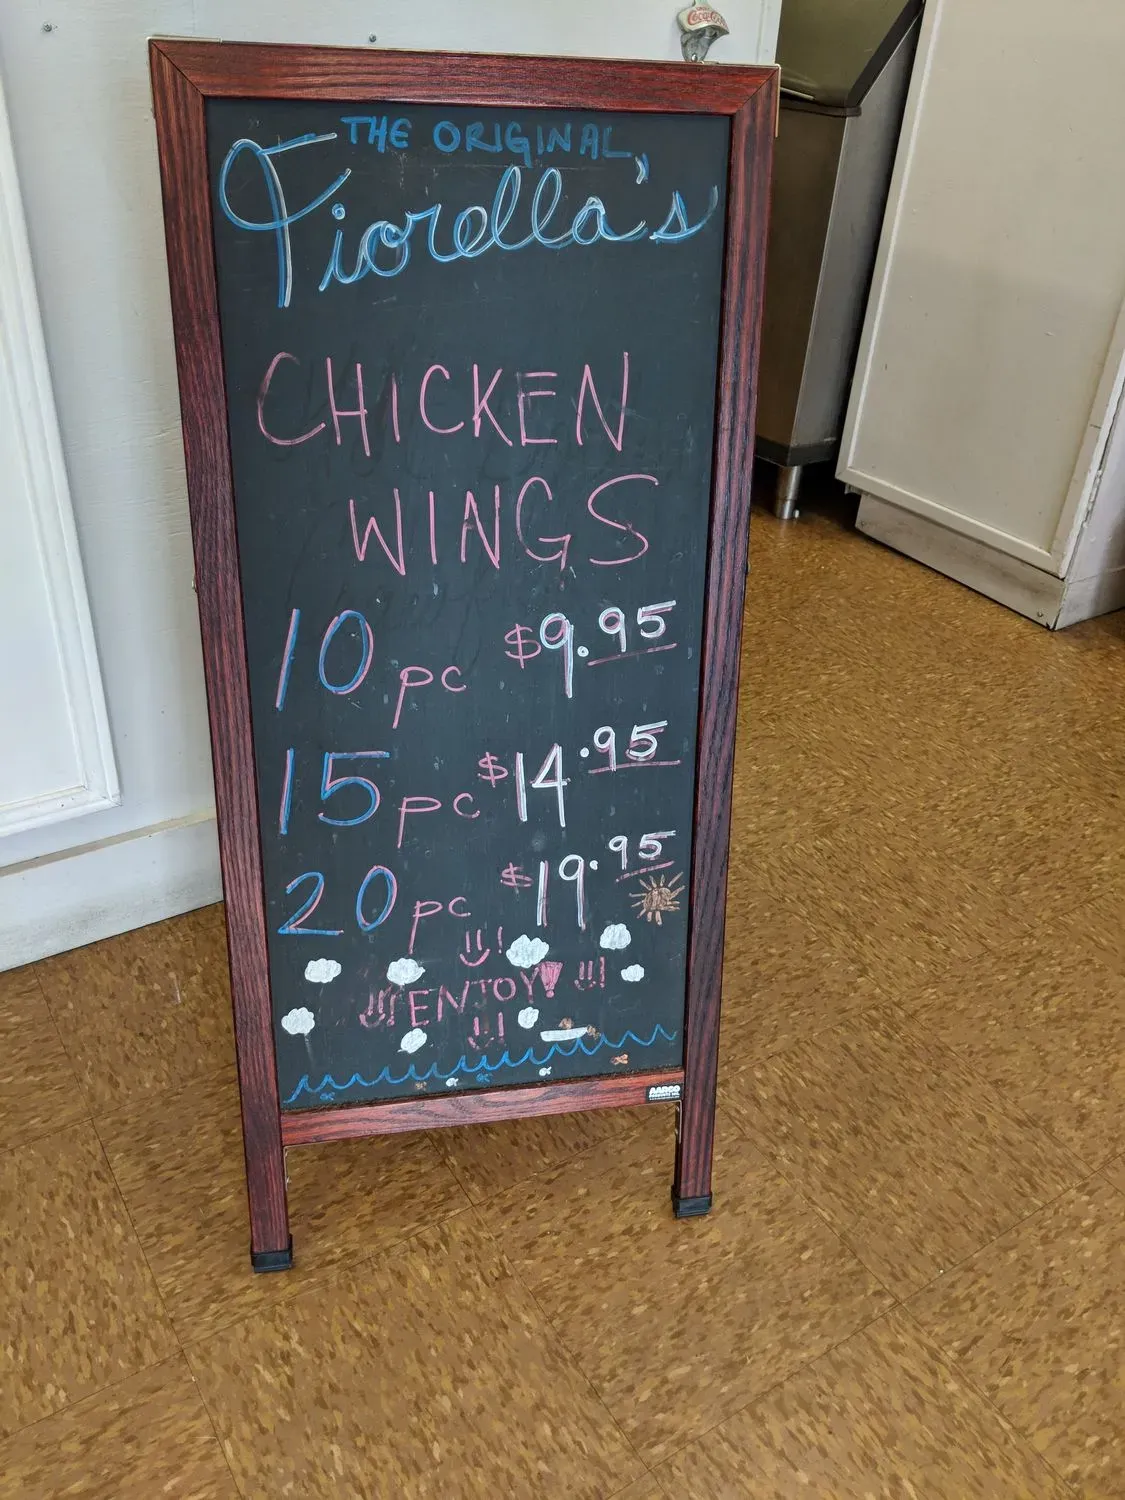 THE ORIGINAL
Fiorella's
CHICKEN
WINGS
10 pc $9.95
15 pc $14.95
20 pc $19.95
ENJOY!
AARCO
Coca-Cola